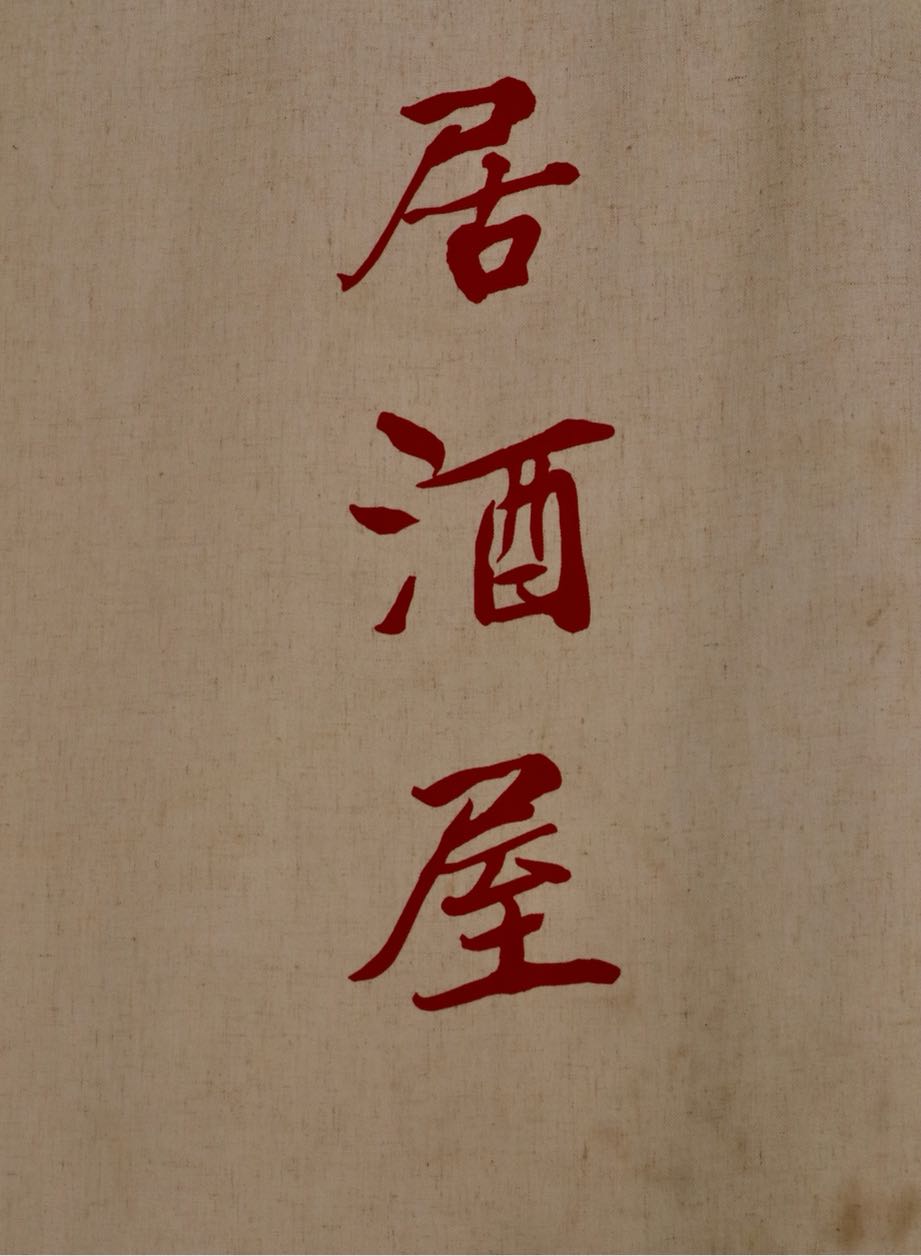 居酒屋